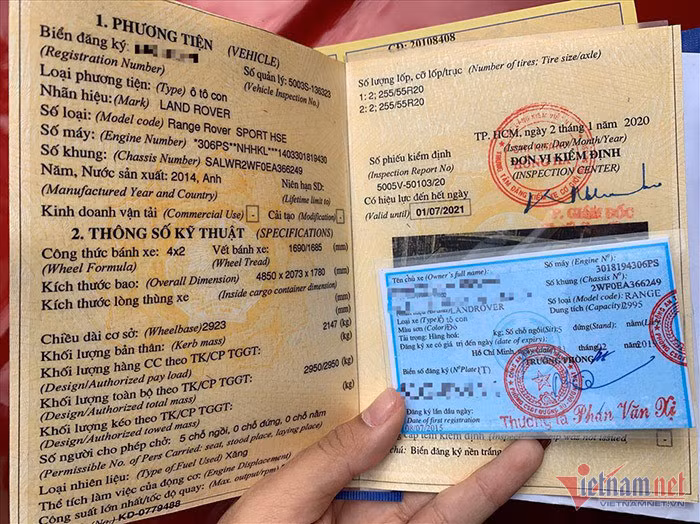 1. PHƯƠNG TIỆN (VEHICLE)
Biển đăng ký:
(Registration Number)
Số quản lý: 5003S-136323
(Vehicle Inspection No.)
Loại phương tiện: (Type) ô tô con
Nhãn hiệu: (Mark) LAND ROVER
Số loại: (Model code) Range Rover SPORT HSE
Số máy: (Engine Number) *306PS**NHHKL***1403301819430
Số khung: (Chassis Number) SALWR2WF0EA366249
Năm, Nước sản xuất: 2014, Anh
(Manufactured Year and Country)
Niên hạn SD:
(Lifetime limit to)
Kinh doanh vận tải (Commercial Use) - Cải tạo (Modification) -
2. THÔNG SỐ KỸ THUẬT (SPECIFICATIONS)
Công thức bánh xe: 4x2 Vết bánh xe: 1690/1685 (mm)
(Wheel Formula) (Wheel Tread)
Kích thước bao: (Overall Dimension) 4850 x 2073 x 1780 (mm)
Kích thước lòng thùng xe (Inside cargo container dimension)
(mm)
Chiều dài cơ sở: (Wheelbase) 2923 (mm)
Khối lượng bản thân: (Kerb mass) 2147 (kg)
Khối lượng hàng CC theo TK/CP TGGT:
(Design/Authorized pay load)
Khối lượng toàn bộ theo TK/CP TGGT: 2950/2950 (kg)
(Design/Authorized total mass)
Khối lượng kéo theo TK/CP TGGT: (kg)
(Design/Authorized towed mass)
Số người cho phép chở: 5 chỗ ngồi, 0 chỗ đứng, 0 chỗ nằm
(Permissible No. of Pers Carried: seat, stood place, laying place)
Loại nhiên liệu: (Type of Fuel Used) Xăng
Thể tích làm việc của động cơ: (Engine Displacement)
Công suất lớn nhất/tốc độ quay: (Max. output/rpm)
KD-0779488
CD: 20108408
Số lượng lốp, cỡ lốp/trục (Number of tires; Tire size/axle)
1: 2; 255/55R20
2: 2; 255/55R20
TP. HCM, ngày 2 tháng 1 năm 2020
(Issued on: Day/Month/Year)
Số phiếu kiểm định ĐƠN VỊ KIỂM ĐỊNH
(Inspection Report No) (INSPECTION CENTER)
5005V-50103/20
Có hiệu lực đến hết ngày
(Valid until) 01/07/2021
P. GIÁM ĐỐC
Tên chủ xe (Owner's full name):
Số máy (Engine Nº):
3018194306PS
Số khung (Chassis Nº):
2WF0EA366249
LANDROVER
Số loại (Model code): RANGE
Loại xe (Type) tô con
Dung tích (Capacity) 2995
Màu sơn (Color) Đỏ
Tải trọng: Hàng hoá: kg; Số chỗ ngồi (Sit): đứng (Stand):
Đăng ký xe có giá trị đến ngày (date of expiry):
Hồ Chí Minh
TRƯỞNG PHÒNG
Biển số đăng ký (NºPlate) (T)
Đăng ký lần đầu ngày:
Date of first registration
Thượng tá Phan Văn Xi
was not issued)
chú: Biển đăng ký nền trắng
Vietnamnet
VIETNAMNET.VN